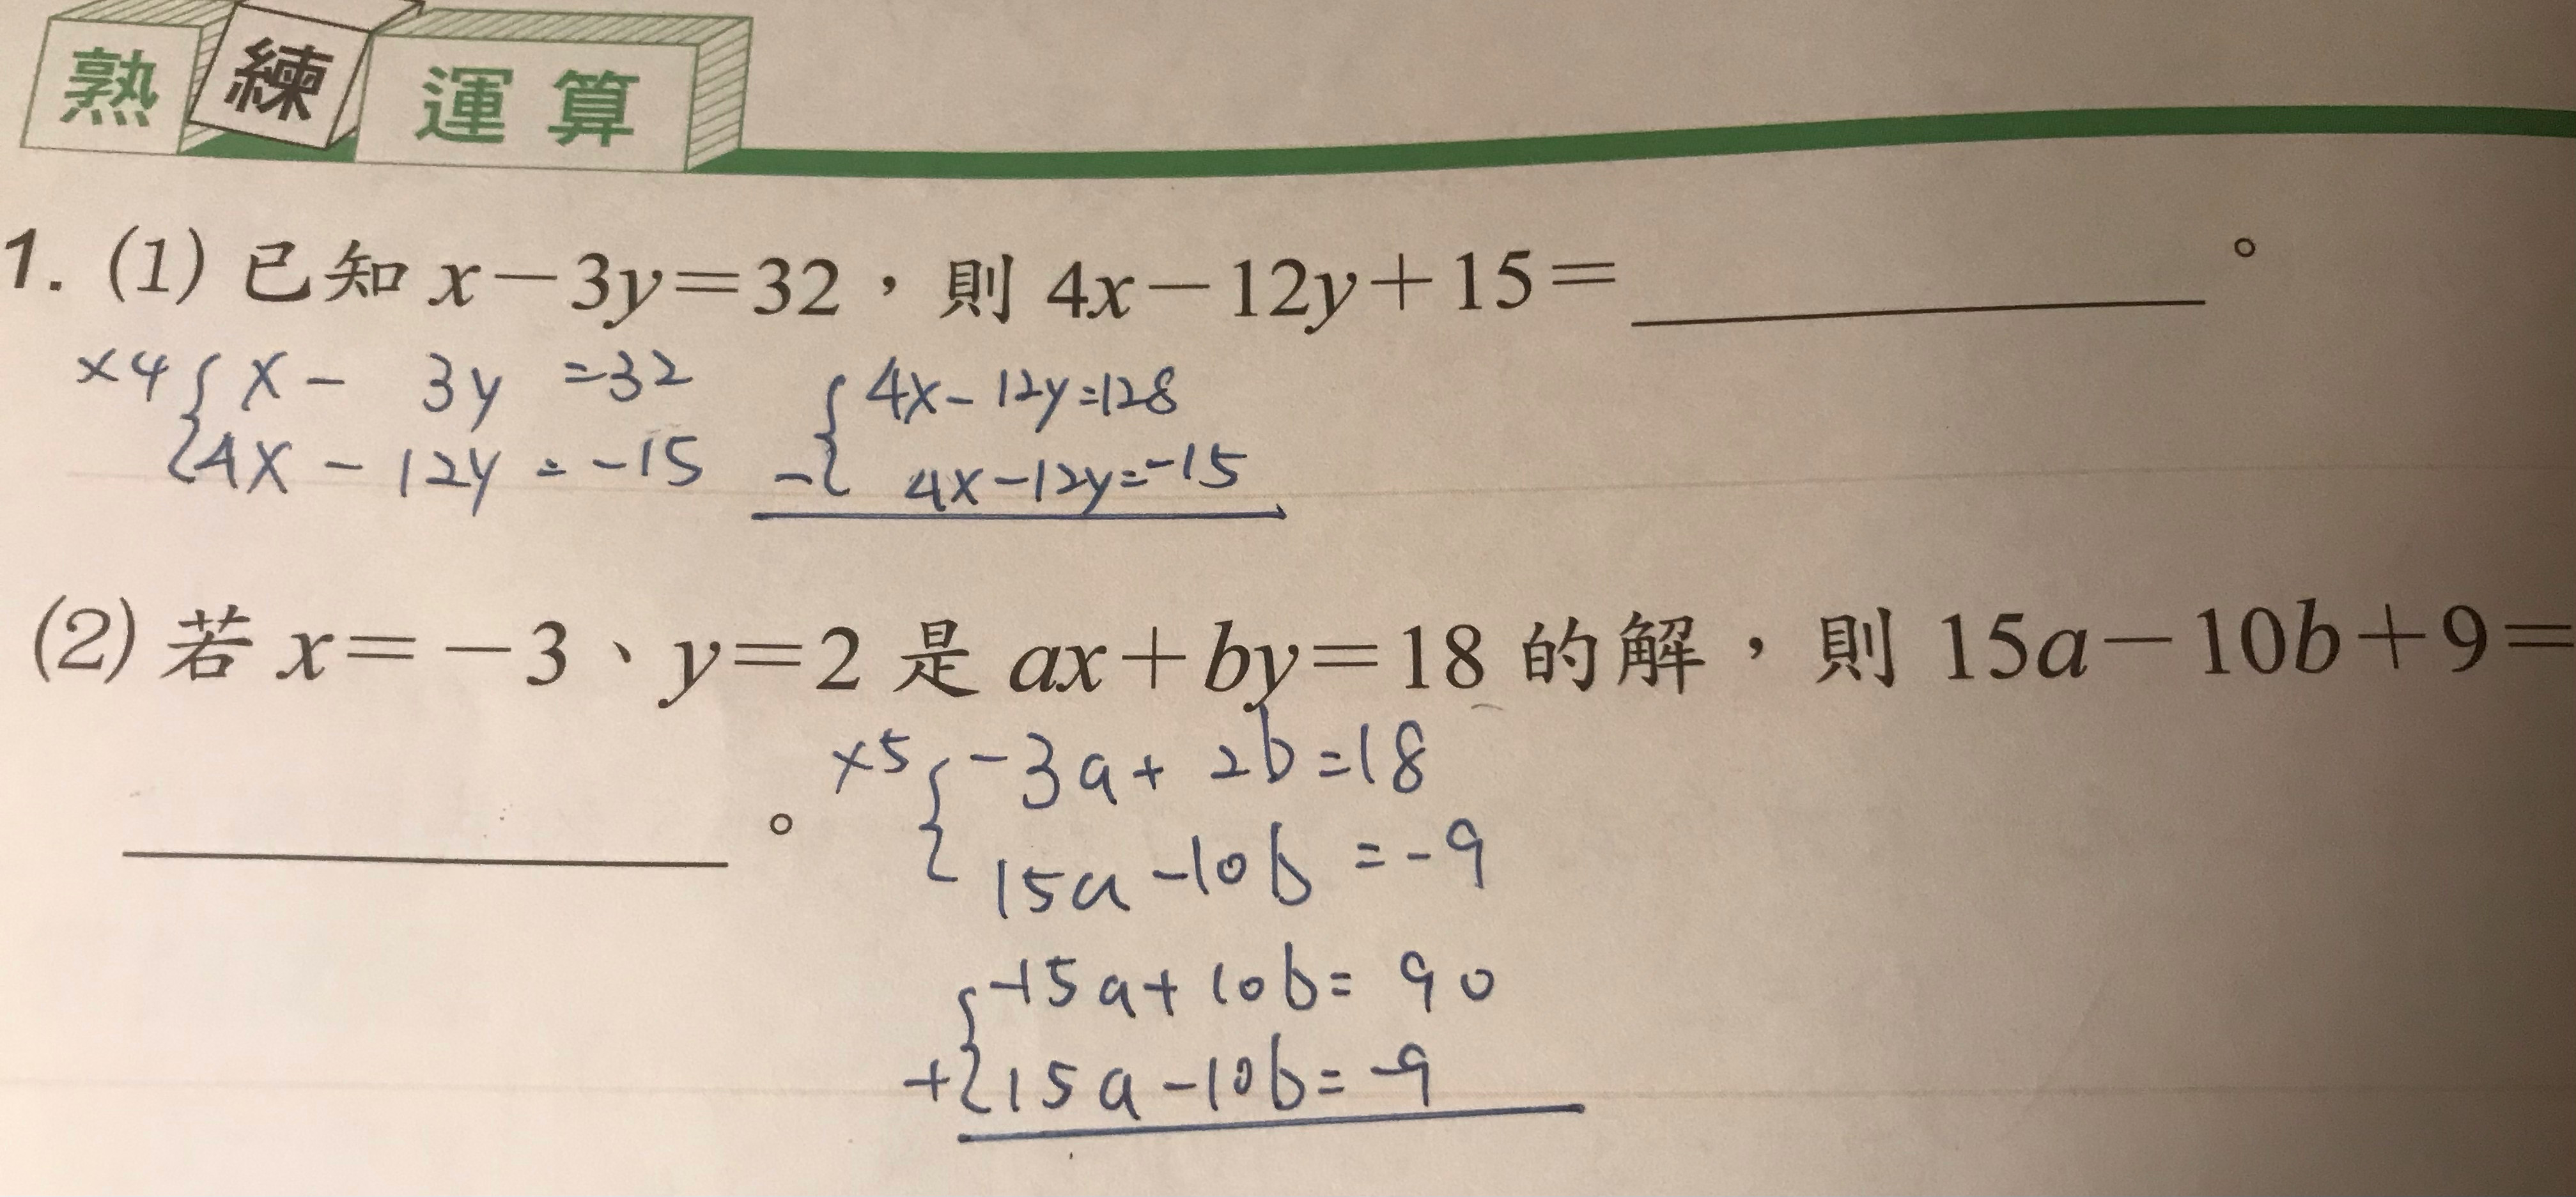 熟練運算
1. (1) 已知 x－3y＝32，則 4x－12y＋15＝＿＿＿＿。
×4 { x - 3y = 32
{ 4x - 12y = -15
{ 4x - 12y = 128
- { 4x - 12y = -15
(2) 若 x＝－3、y＝2 是 ax＋by＝18 的解，則 15a－10b＋9＝
＿＿＿＿。
×5 { -3a + 2b = 18
{ 15a - 10b = -9
{ -15a + 10b = 90
+ { 15a - 10b = -9